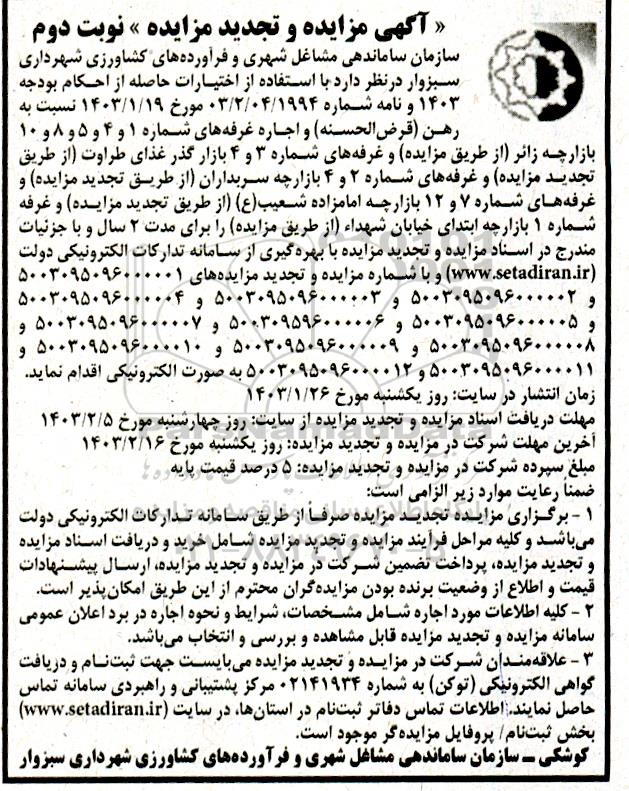 « آگهی مزایده و تجدید مزایده » نوبت دوم
سازمان ساماندهی مشاغل شهری و فرآورده‌های کشاورزی شهرداری
سبزوار درنظر دارد با استفاده از اختیارات حاصله از احکام بودجه
۱۴۰۳ و نامه شماره ۰۳/۲/۰۴/۱۹۹۴ مورخ ۱۴۰۳/۱/۱۹ نسبت به
رهن (قرض‌الحسنه) و اجاره غرفه‌های شماره ۱ و ۴ و ۵ و ۸ و ۱۰
بازارچه زائر (از طریق مزایده) و غرفه‌های شماره ۳ و ۴ بازار گذر غذای طراوت (از طریق
تجدید مزایده) و غرفه‌های شماره ۲ و ۴ بازارچه سربداران (از طریق تجدید مزایده) و
غرفه‌های شماره ۷ و ۱۲ بازارچه امامزاده شعیب(ع) (از طریق تجدید مزایده) و غرفه
شماره ۱ بازارچه ابتدای خیابان شهداء (از طریق مزایده) را برای مدت ۲ سال و با جزئیات
مندرج در اسناد مزایده و تجدید مزایده با بهره‌گیری از سامانه تدارکات الکترونیکی دولت
(www.setadiran.ir) و با شماره مزایده و تجدید مزایده‌های ۵۰۰۳۰۹۵۰۹۶۰۰۰۰۰۱
و ۵۰۰۳۰۹۵۰۹۶۰۰۰۰۰۲ و ۵۰۰۳۰۹۵۰۹۶۰۰۰۰۰۳ و ۵۰۰۳۰۹۵۰۹۶۰۰۰۰۰۴
و ۵۰۰۳۰۹۵۰۹۶۰۰۰۰۰۵ و ۵۰۰۳۰۹۵۹۶۰۰۰۰۰۶ و ۵۰۰۳۰۹۵۰۹۶۰۰۰۰۰۷ و
۵۰۰۳۰۹۵۰۹۶۰۰۰۰۰۸ و ۵۰۰۳۰۹۵۰۹۶۰۰۰۰۰۹ و ۵۰۰۳۰۹۵۰۹۶۰۰۰۰۱۰ و
۵۰۰۳۰۹۵۰۹۶۰۰۰۰۱۱ و ۵۰۰۳۰۹۵۰۹۶۰۰۰۰۱۲ به صورت الکترونیکی اقدام نماید.
زمان انتشار در سایت: روز یکشنبه مورخ ۱۴۰۳/۱/۲۶
مهلت دریافت اسناد مزایده و تجدید مزایده از سایت: روز چهارشنبه مورخ ۱۴۰۳/۲/۵
آخرین مهلت شرکت در مزایده و تجدید مزایده: روز یکشنبه مورخ ۱۴۰۳/۲/۱۶
مبلغ سپرده شرکت در مزایده و تجدید مزایده: ۵ درصد قیمت پایه
ضمناً رعایت موارد زیر الزامی است:
۱ - برگزاری مزایده تجدید مزایده صرفاً از طریق سامانه تدارکات الکترونیکی دولت
می‌باشد و کلیه مراحل فرآیند مزایده و تجدید مزایده شامل خرید و دریافت اسناد مزایده
و تجدید مزایده، پرداخت تضمین شرکت در مزایده و تجدید مزایده، ارسال پیشنهادات
قیمت و اطلاع از وضعیت برنده بودن مزایده‌گران محترم از این طریق امکان‌پذیر است.
۲ - کلیه اطلاعات مورد اجاره شامل مشخصات، شرایط و نحوه اجاره در برد اعلان عمومی
سامانه مزایده و تجدید مزایده قابل مشاهده و بررسی و انتخاب می‌باشد.
۳ - علاقه‌مندان شرکت در مزایده و تجدید مزایده می‌بایست جهت ثبت‌نام و دریافت
گواهی الکترونیکی (توکن) به شماره ۰۲۱۴۱۹۳۴ مرکز پشتیبانی و راهبردی سامانه تماس
حاصل نمایند. اطلاعات تماس دفاتر ثبت‌نام در استان‌ها، در سایت (www.setadiran.ir)
بخش ثبت‌نام/ پروفایل مزایده‌گر موجود است.
کوشکی ـ سازمان ساماندهی مشاغل شهری و فرآورده‌های کشاورزی شهرداری سبزوار